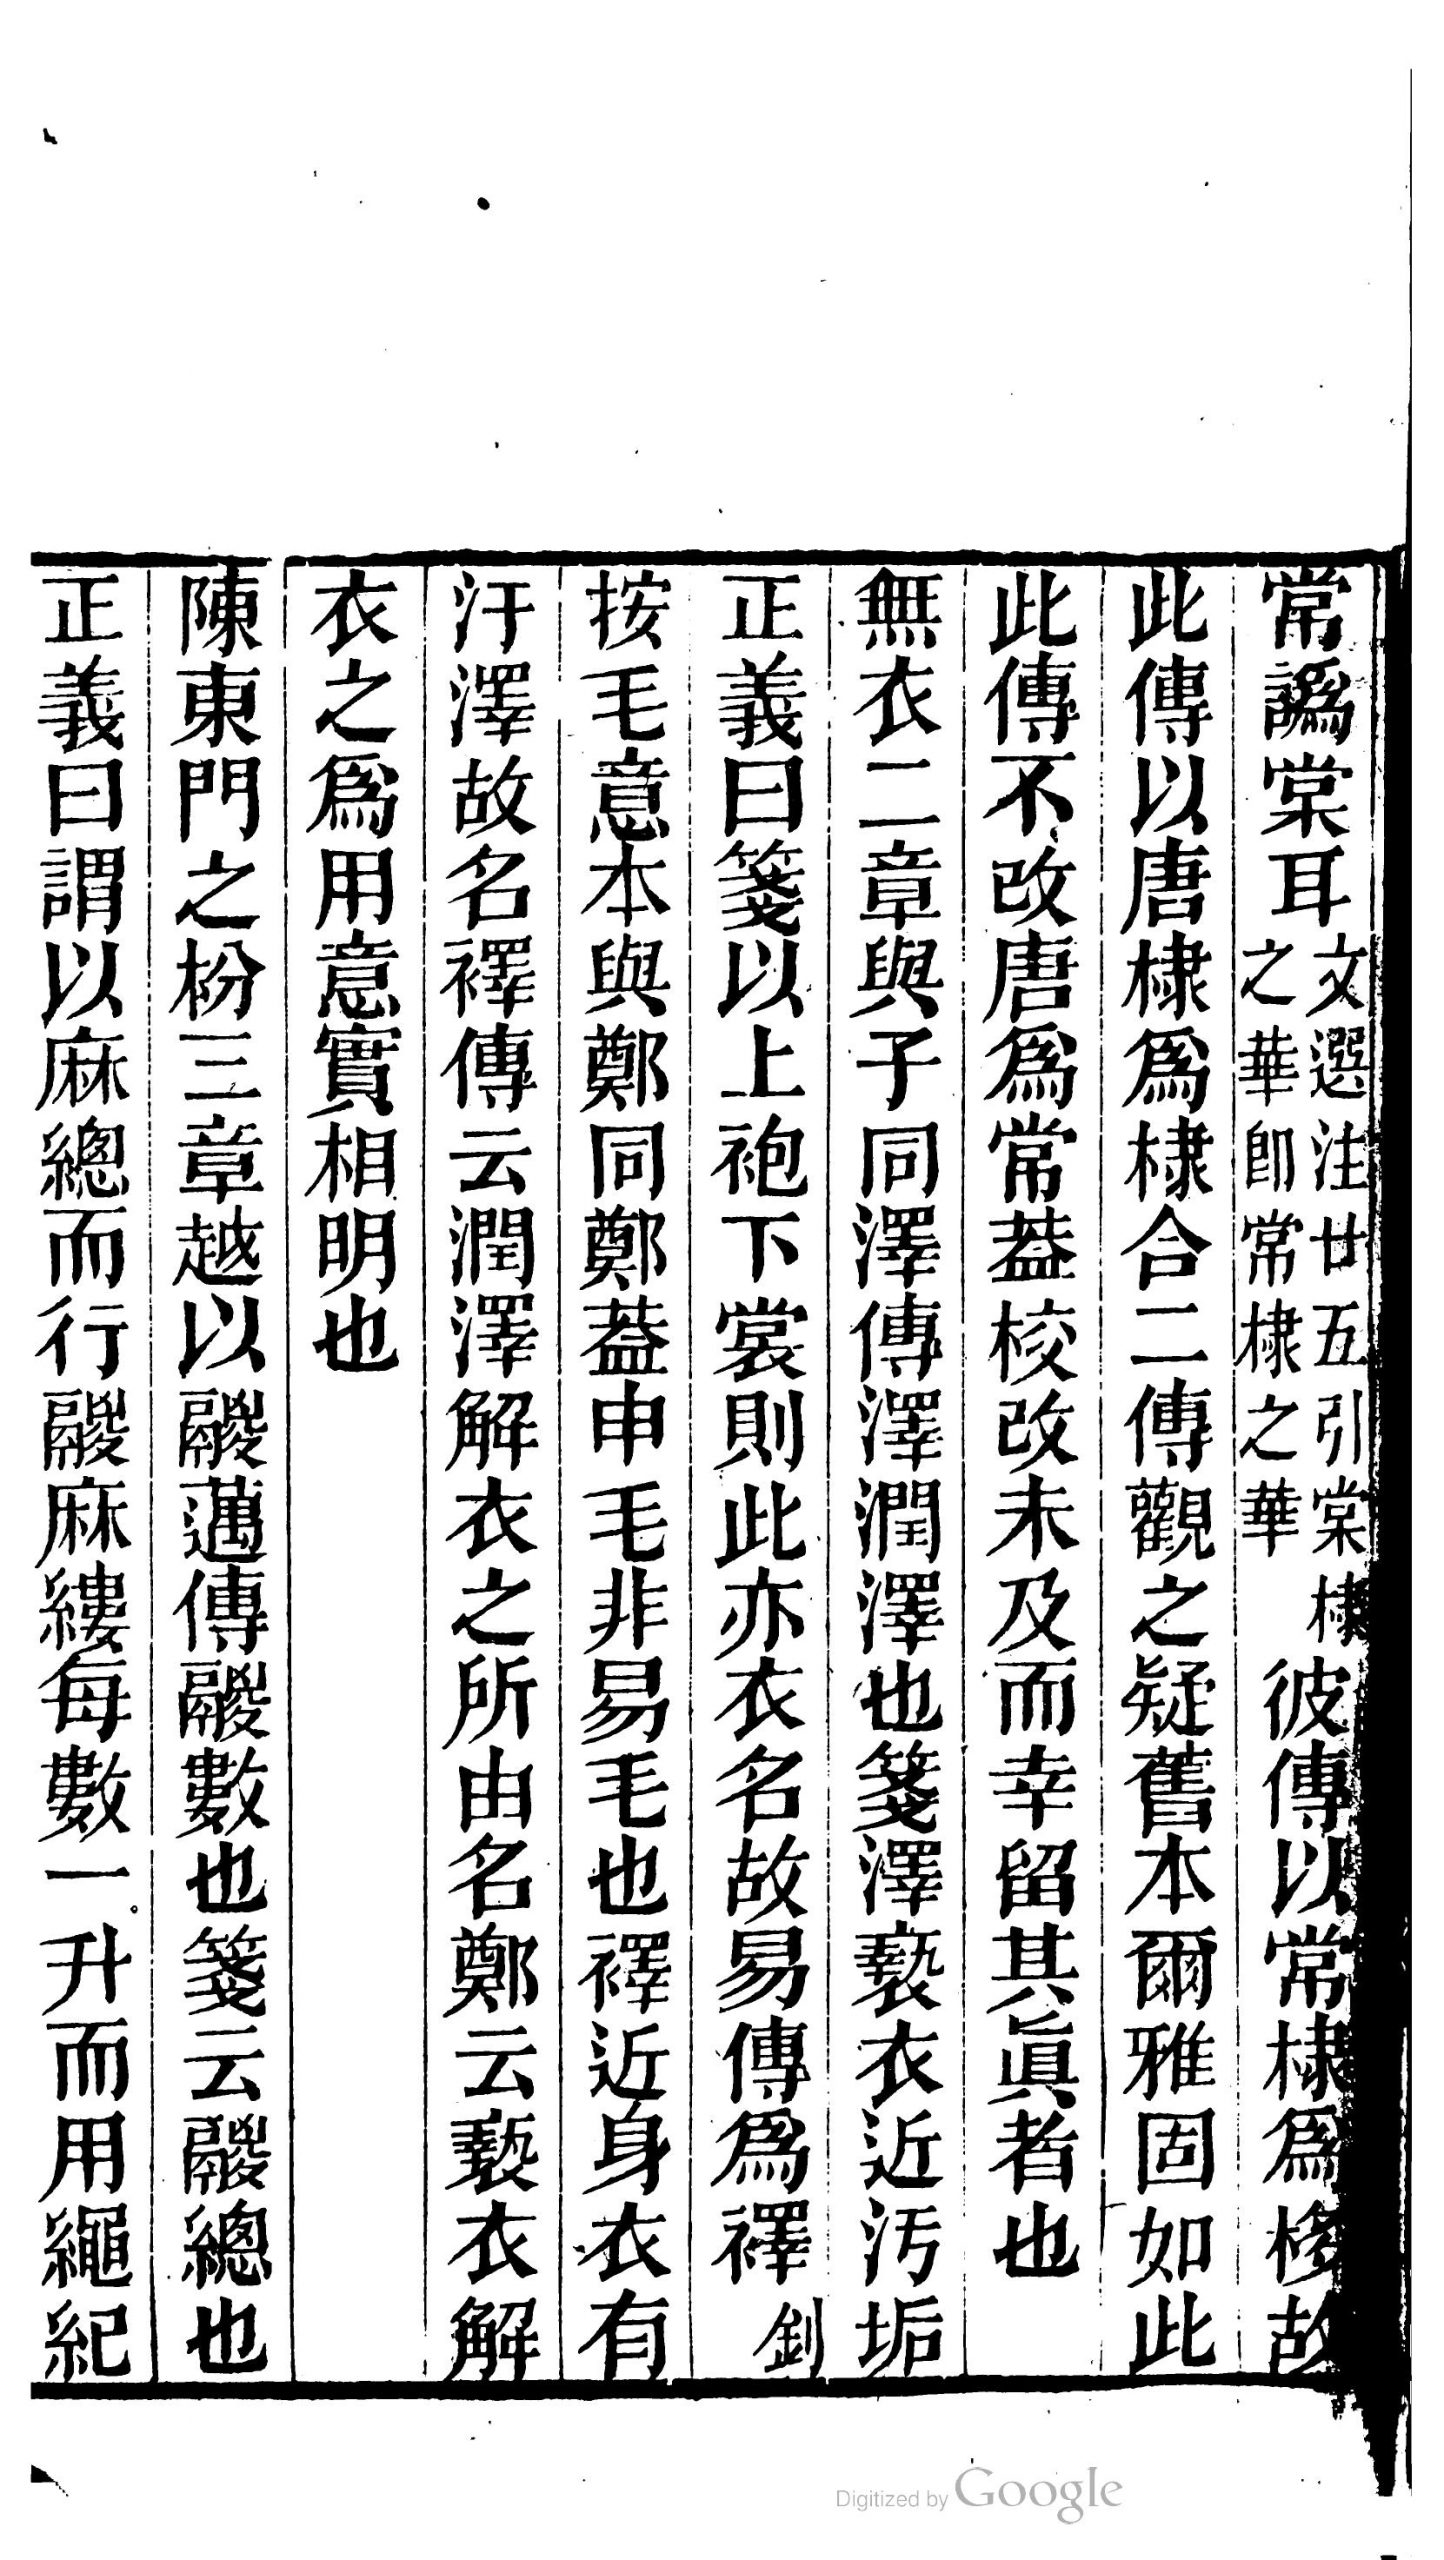 常譌棠耳文選注廿五引棠棣之華卽常棣之華彼傳以常棣爲栘故
此傳以唐棣爲棣合二傳觀之疑舊本爾雅固如此
此傳不改唐爲常葢校改未及而幸留其眞者也
無衣二章與子同澤傳澤潤澤也箋澤褻衣近汚垢
正義曰箋以上袍下裳則此亦衣名故易傳爲襗釗
按毛意本與鄭同鄭葢申毛非易毛也襗近身衣有
汙澤故名襗傳云潤澤解衣之所由名鄭云褻衣解
衣之爲用意實相明也
陳東門之枌三章越以鬷邁傳鬷數也箋云鬷總也
正義曰謂以麻總而行鬷麻縷每數一升而用繩紀
Digitized by Google